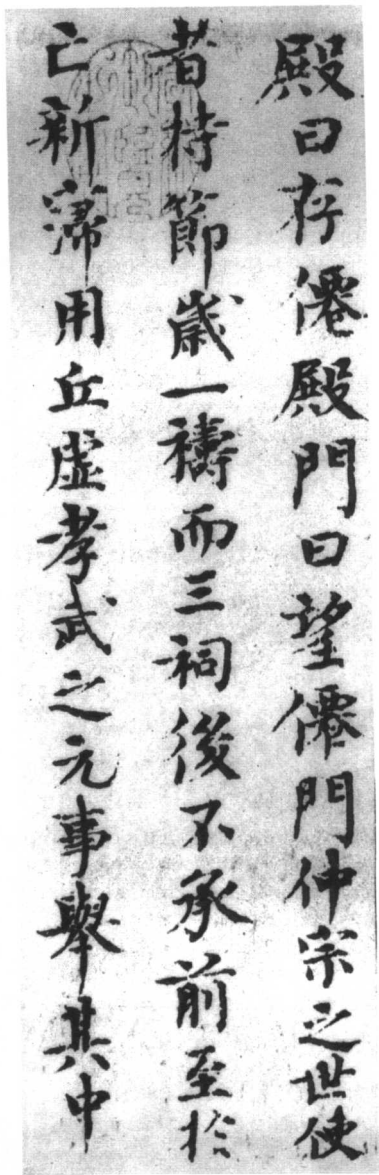 殿曰存僊殿門曰望僊門仲宗之世使
者持節歲一禱而三祠後不承前至於
亡新寖用丘虛孝武之元事舉其中